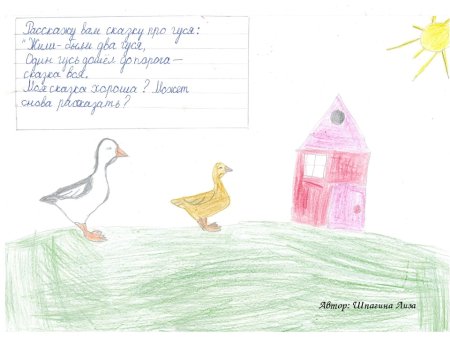 Расскажу вам сказку про гуся:
"Жили-были два гуся,
Один гусь дошёл до порога –
сказка вся.
Моя сказка хороша? Может
снова рассказать?
Автор: Шпагина Лиза